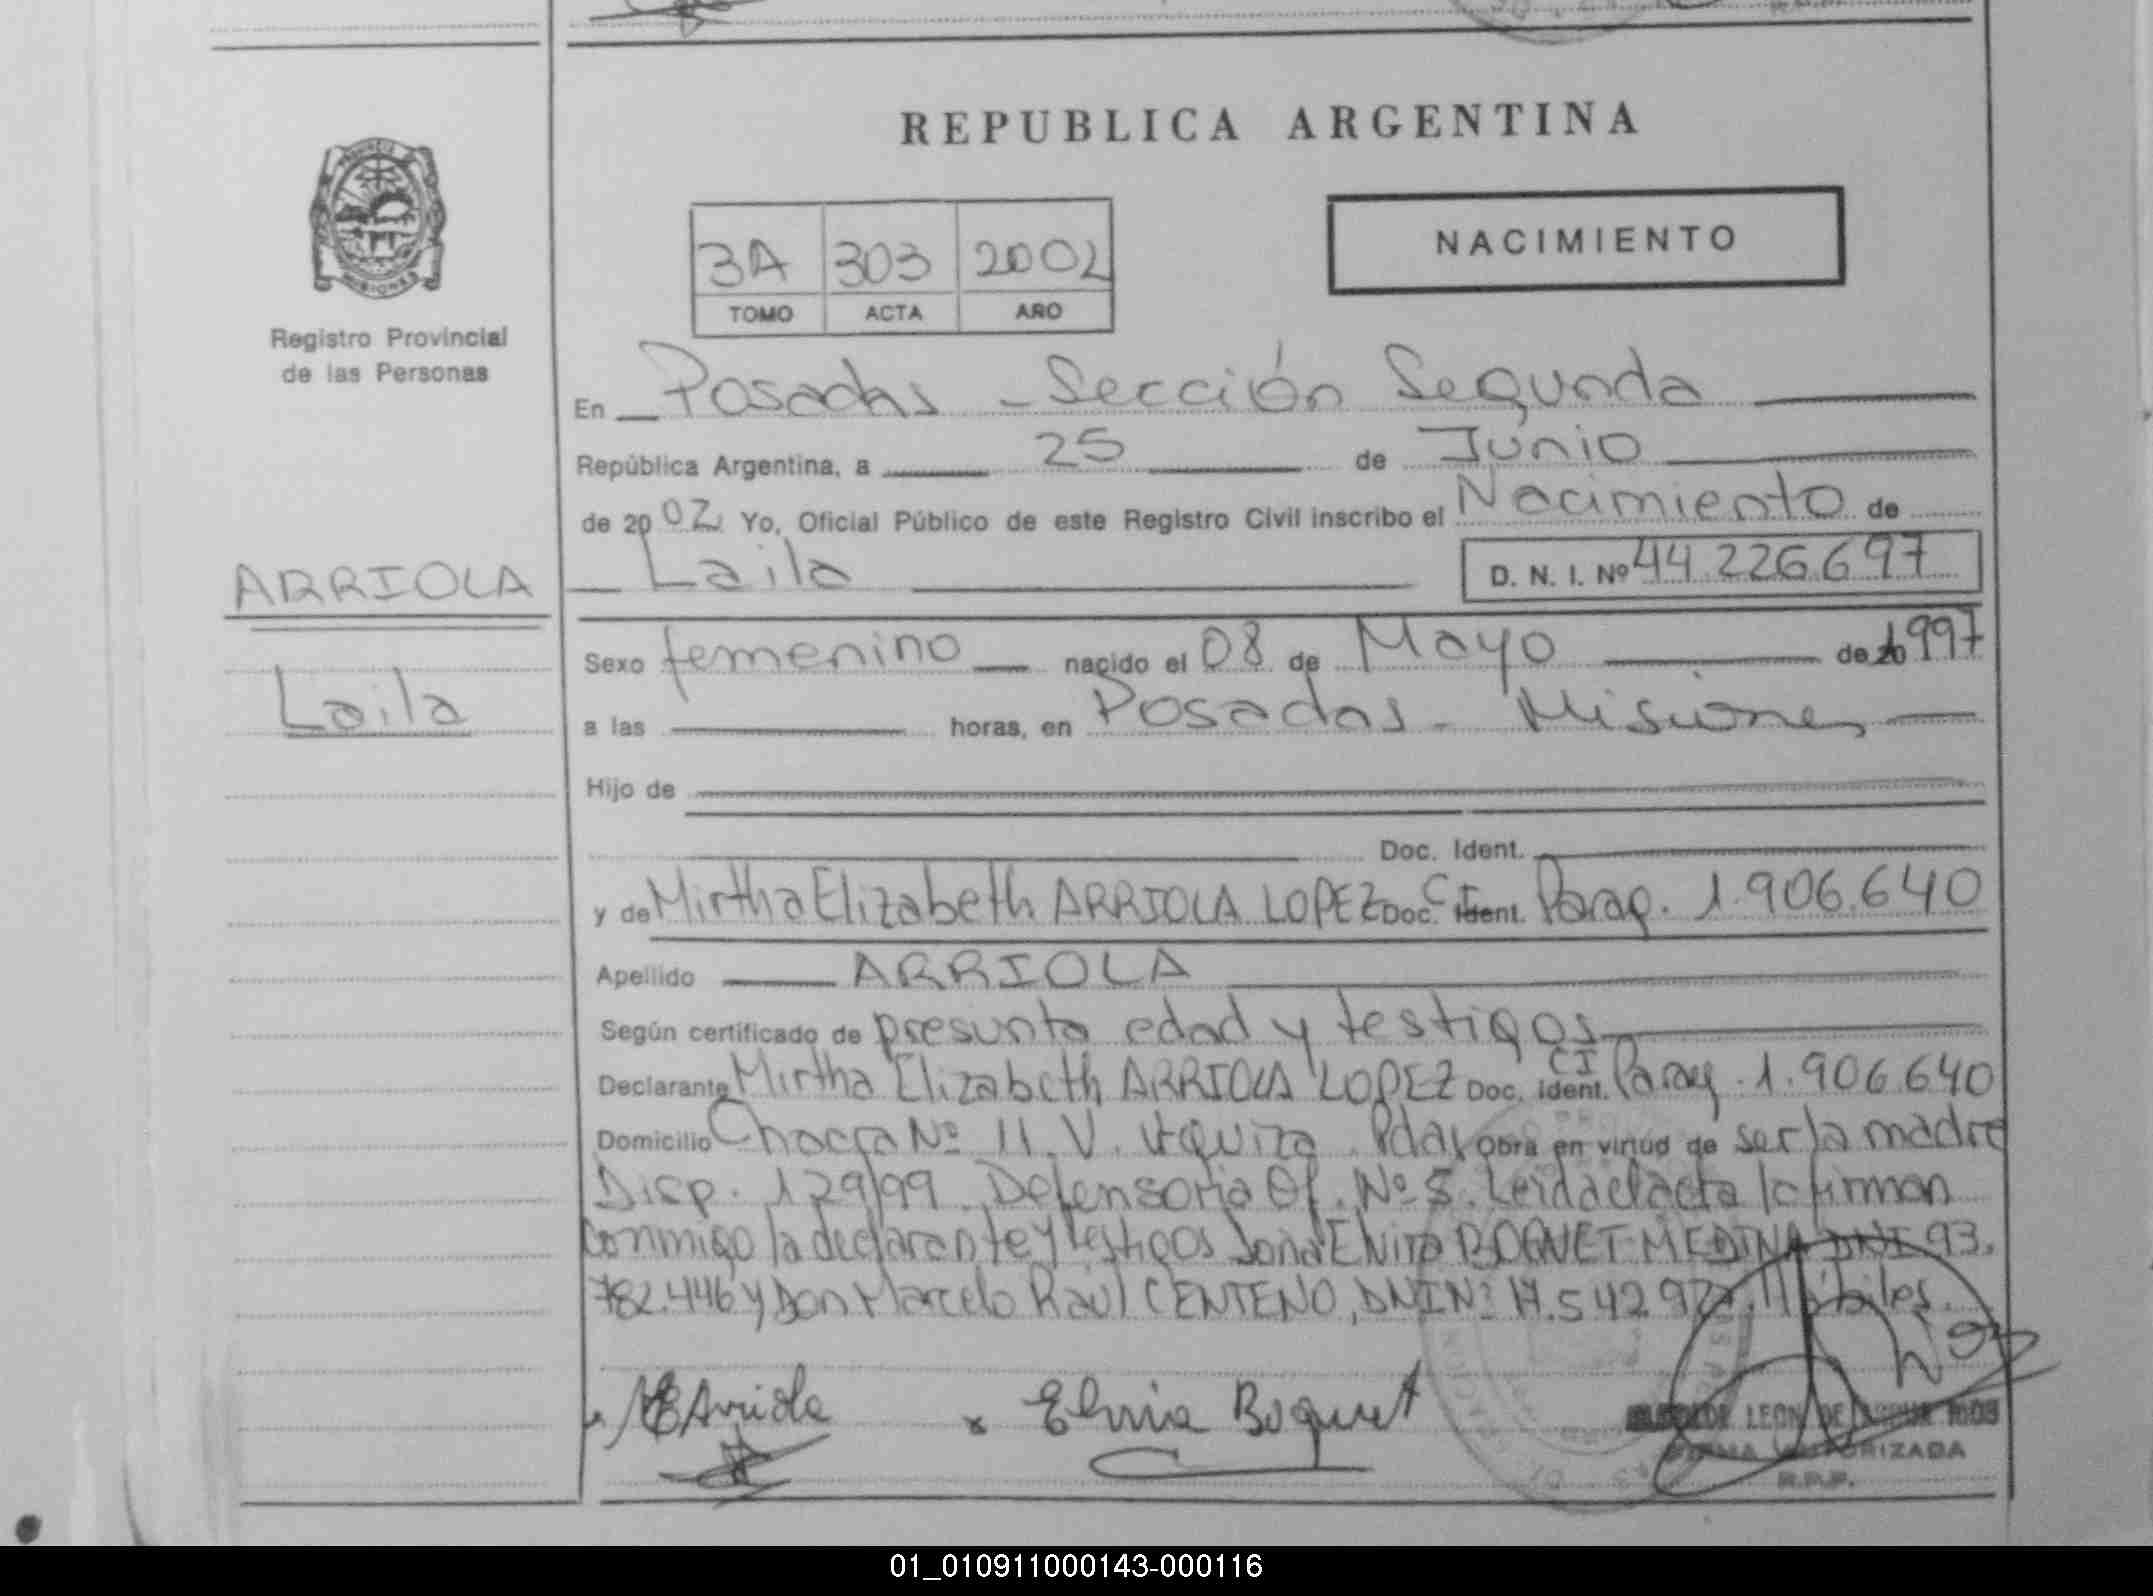 REPUBLICA ARGENTINA
PROVINCIA DE
MISIONES
Registro Provincial
de las Personas
3A 303 2002
TOMO ACTA AÑO
NACIMIENTO
En Posadas - Sección Segunda
República Argentina, a 25 de Junio
de 2002 Yo, Oficial Público de este Registro Civil inscribo el Nacimiento de
Laila D. N. I. Nº 44.226.697
ARRIOLA
Laila
Sexo femenino nacido el 08 de Mayo de 1997
a las horas, en Posadas - Misiones
Hijo de
Doc. Ident.
y de Mirtha Elizabeth ARRIOLA LOPEZ Doc. Ident. CI Parag. 1.906.640
Apellido ARRIOLA
Según certificado de presunta edad y testigos
Declarante Mirtha Elizabeth ARRIOLA LOPEZ Doc. Ident. CI Parag. 1.906.640
Domicilio Chacra Nº 11 V. Urquiza Pdas Obra en virtud de ser la madre
Disp. 129/99 Defensoria Of. Nº 5. Leida el acta la firman
conmigo la declarante y testigos Doña Elvira BOGUET MEDINA DNI 93.
782.446 y Don Marcelo Raúl CENTENO, DNI Nº 17.542.97 Hábiles.
MEArriola x Elvira Boguet
LEON DE
FIRMA AUTORIZADA
R.P.P.
01_010911000143-000116